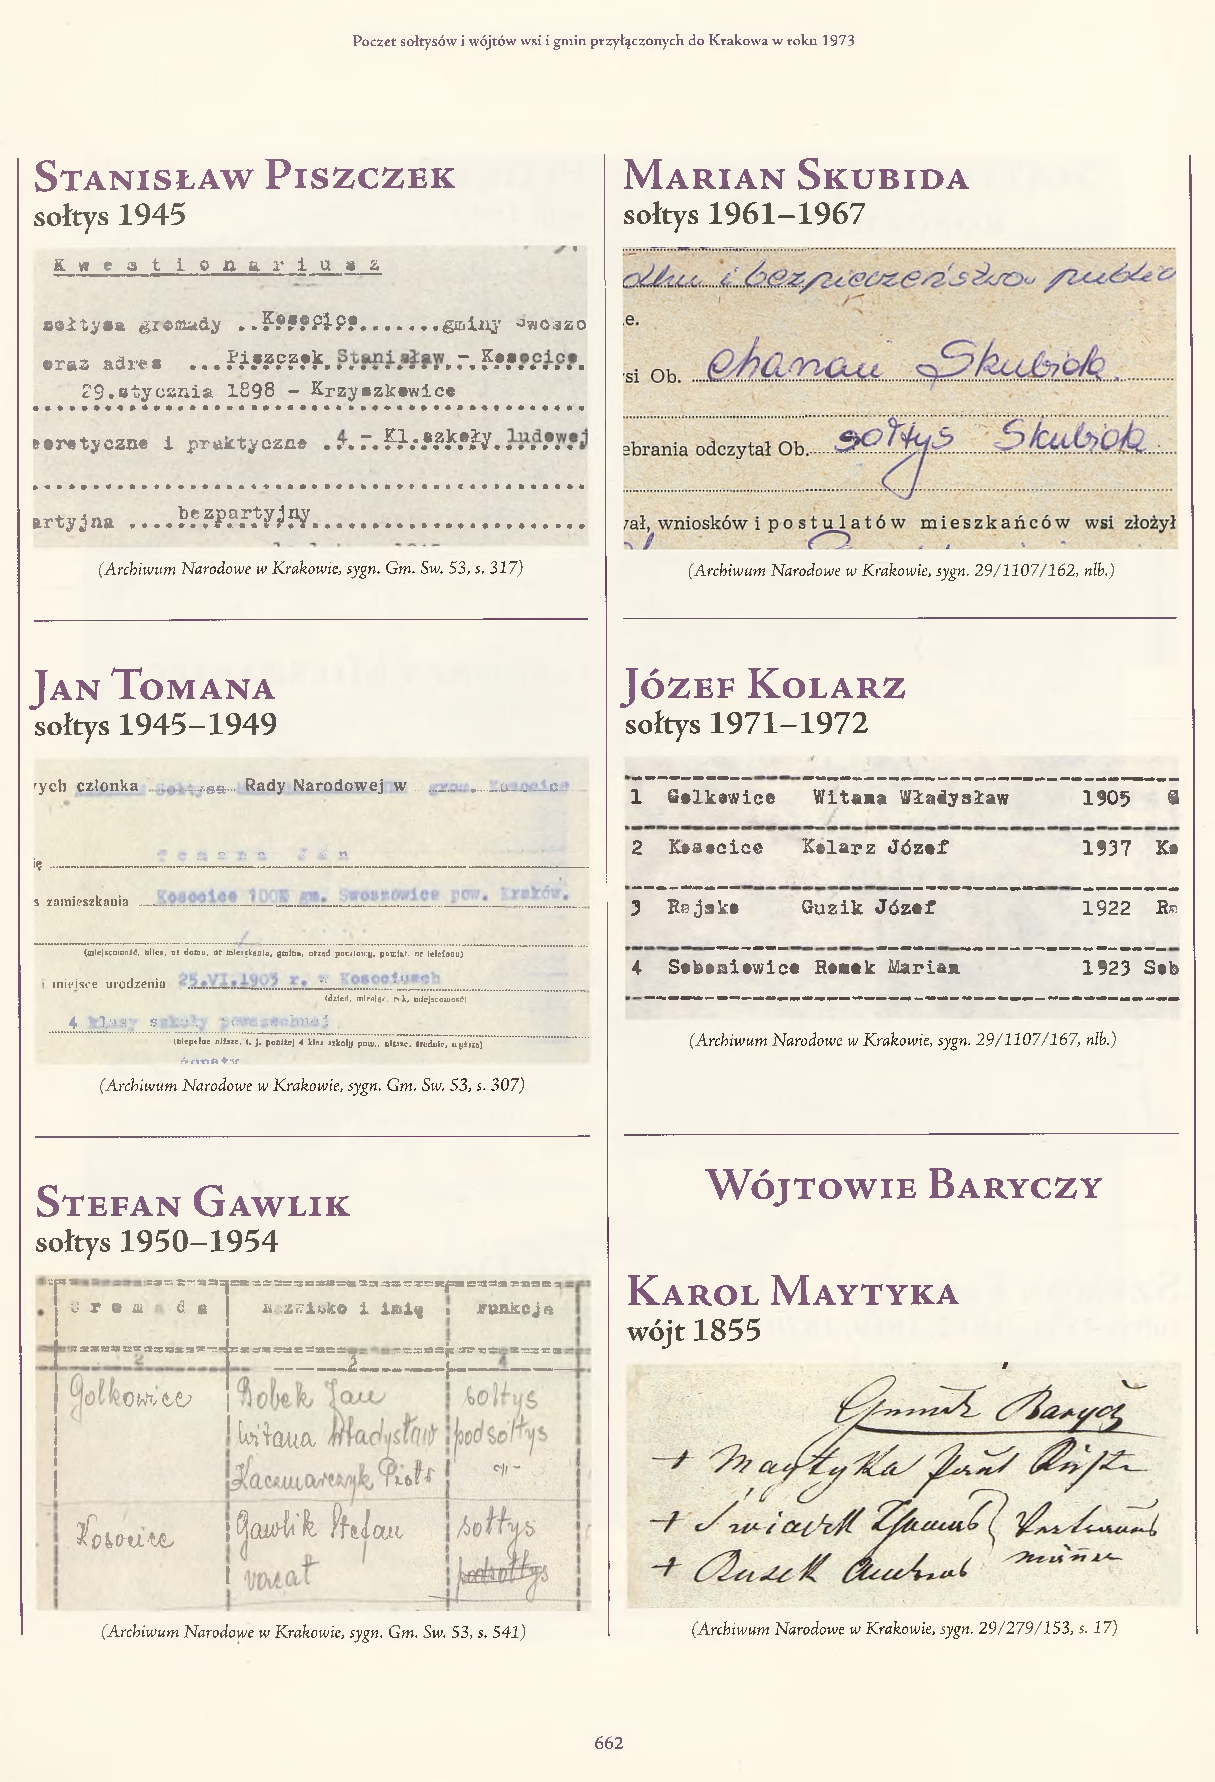 Poczet sołtysów i wójtów wsi i gmin przyłączonych do Krakowa w roku 1973
Stanisław Piszczek
sołtys 1945
Kwestionariusz
sołtysa gromady ..Kosocice.......gminy Swoszo
oraz adres ...Piszczek Stanisław - Kosocice.
29.stycznia 1898 - Krzyszkowice
eoretyczne i praktyczne .4.- Kl.szkoły ludowej
artyjna ....bezpartyjny
(Archiwum Narodowe w Krakowie, sygn. Gm. Sw. 53, s. 317)
Jan Tomana
sołtys 1945–1949
rych członka Sołtysa Rady Narodowej w grom. Kosocice
ię Tomana Jan
s zamieszkania Kosocice 100 gm. Swoszowice pow. Kraków.
(miejscowość, ulica, nr domu, nr mieszkania, gmina, urząd pocztowy, powiat, nr telefonu)
i miejsce urodzenia 25.VI.1903 r. w Kosocicach
(dzień, miesiąc, rok, miejscowość)
4 klasy szkoły powszechnej
(niepełne niższe, t. j. poniżej 4 klas szkoły pow., niższe, średnie, wyższe)
(Archiwum Narodowe w Krakowie, sygn. Gm. Sw. 53, s. 307)
Stefan Gawlik
sołtys 1950–1954
Gromada Nazwisko i imię Funkcja
2 3 4
Golkowice Bobek Jan sołtys
Witana Władysław podsołtys
Kaczmarczyk Piotr -"-
Kosocice Gawlik Stefan sołtys
vacat podsołtys
(Archiwum Narodowe w Krakowie, sygn. Gm. Sw. 53, s. 541)
Marian Skubida
sołtys 1961–1967
i bezpieczeństwa public
e.
si Ob. Marian Skubida
ebrania odczytał Ob. sołtys Skubida
ał, wniosków i postulatów mieszkańców wsi złożył
(Archiwum Narodowe w Krakowie, sygn. 29/1107/162, nlb.)
Józef Kolarz
sołtys 1971–1972
1 Golkowice Witana Władysław 1905 G
2 Kosocice Kolarz Józef 1937 Ko
3 Rajsko Guzik Józef 1922 Ra
4 Soboniowice Romek Marian 1923 Sob
(Archiwum Narodowe w Krakowie, sygn. 29/1107/167, nlb.)
Wójtowie Baryczy
Karol Maytyka
wójt 1855
Barycz
+ Maytyka
+ Świątek Thomas
+
(Archiwum Narodowe w Krakowie, sygn. 29/279/153, s. 17)
662